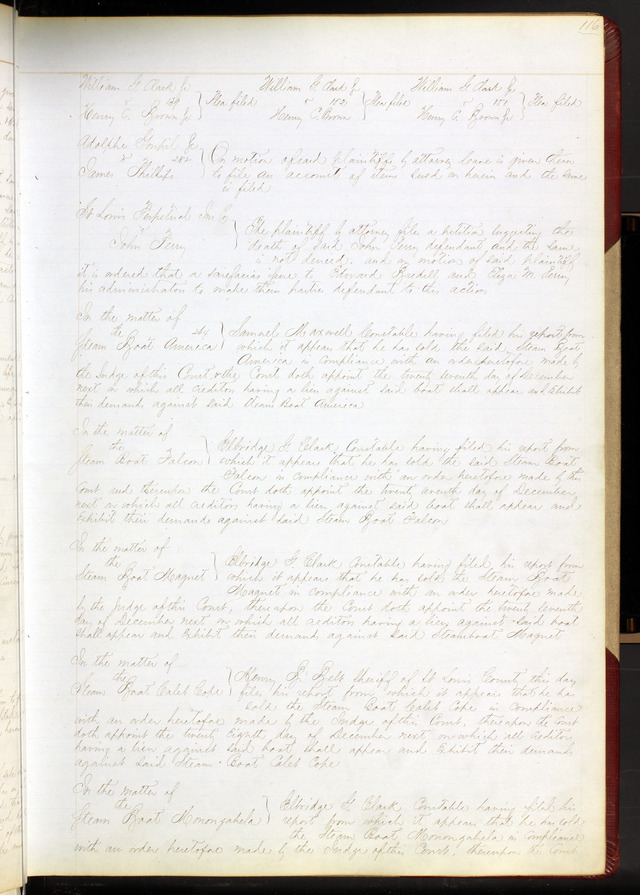 116
William G. Clark Jr William G. Clark Jr William G. Clark Jr
v 29 } Plea filed v 152 } Plea filed v 151 } Plea filed
Henry C. Brown Jr Henry C. Brown Henry C. Brown Jr
Adolphe &c
v 282 } On motion of said plaintiff by attorney leave is given them
James Phillips to file an account of items sued on herein and the same
is filed
St Louis Perpetual Ins Co
v } The plaintiff by attorney file a petition suggesting the
John Perry death of said John Perry defendant and the same
is not denied, and on motion of said plaintiff
it is ordered that a scirefacias issue to Edward Bredell and Eliza M. Perry
his administrators to make them parties defendant to this action
In the matter of
the 244 } Samuel Maxwell Constable having filed his report from
Steam Boat America which it appears that he has sold the said Steam Boat
America in compliance with an order heretofore made by
the Judge of this Court & the Court doth appoint the twenty seventh day of December
next on which all creditors having a lien against said boat shall appear and Exhibit
their demands against said Steam Boat America
In the matter of
the } Elbridge G. Clark, Constable having filed his report from
Steam Boat Falcon which it appears that he has sold the said Steam Boat
Falcon in compliance with an order heretofore made by this
Court and thereupon the Court doth appoint the twenty seventh day of December
next on which all creditors having a lien against said boat shall appear and
Exhibit their demands against said Steam Boat Falcon
In the matter of
the } Elbridge G. Clark Constable having filed his report from
Steam Boat Magnet which it appears that he has sold the Steam Boat
Magnet in compliance with an order heretofore made
by the Judge of this Court, thereupon the Court doth appoint the twenty seventh
day of December next on which all creditors having a lien against said boat
shall appear and Exhibit their demands against said Steamboat Magnet
In the matter of
the } Henry B. Belt Sheriff of St Louis County this day
Steam Boat Caleb Cope files his report from which it appears that he has
sold the Steam Boat Caleb Cope in compliance
with an order heretofore made by the Judge of this Court, thereupon the Court
doth appoint the twenty Eighth day of December next, on which all creditors
having a lien against said boat shall appear and Exhibit their demands
against said Steam Boat Caleb Cope
In the matter of
the } Elbridge G. Clark Constable having filed his
Steam Boat Monongahela report from which it appears that he has sold
the Steam Boat Monongahela in compliance
with an order heretofore made by the Judge of this Court, thereupon the Court